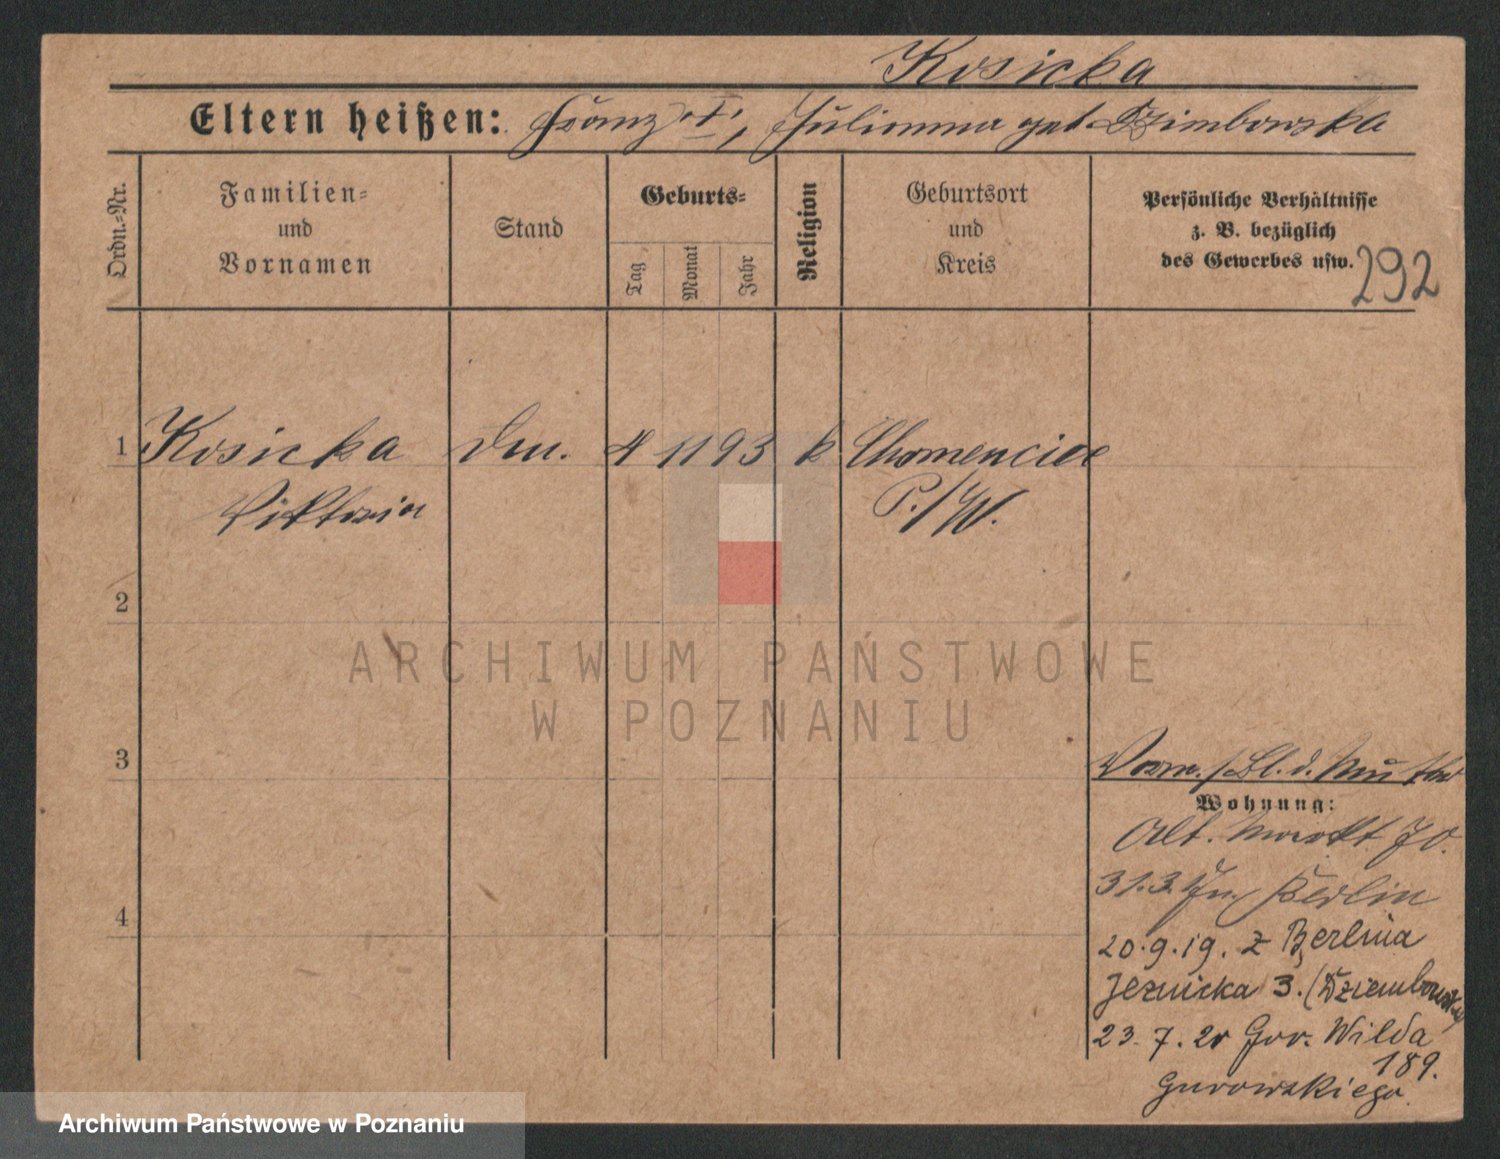 Kosicka
Eltern heißen: Franz †, Julianna geb. Dzimbowska
Ordn.-Nr.
Familien-
und
Vornamen
Stand
Geburts-
Tag
Monat
Jahr
Religion
Geburtsort
und
Kreis
Persönliche Verhältnisse
z. B. bezüglich
des Gewerbes usw.
292
1 Kosicka 4 11 93 k Chomencice
Viktoria P./W.
2
ARCHIWUM PAŃSTWOWE
W POZNANIU
3
Vorm. / Bl. d. Mutter
Wohnung:
Alt. Markt
31.3. Berlin
4
20.9.19. z Berlina
Jeznicka 3. (Dziembowska)
23.7.20 Gór. Wilda
189.
Gurowskiego
Archiwum Państwowe w Poznaniu